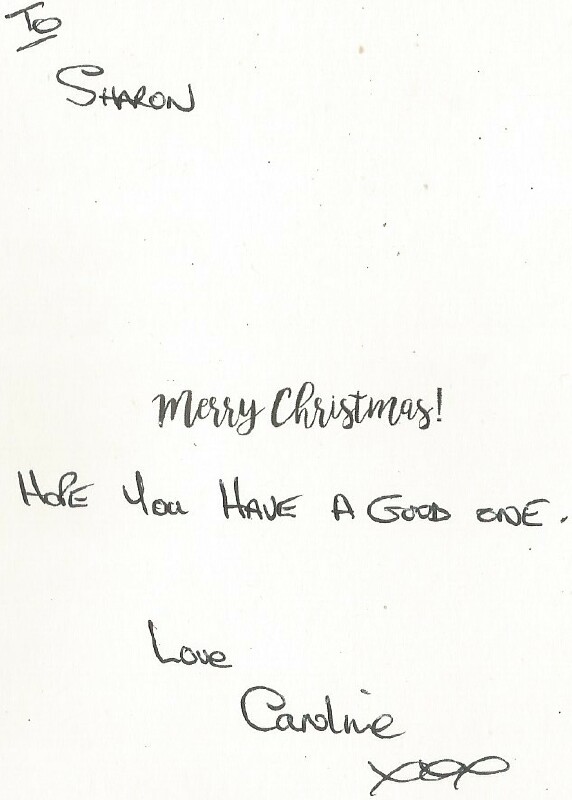 To
SHARON
Merry Christmas!
HOPE YOU HAVE A GOOD ONE.
Love
Caroline
xxx